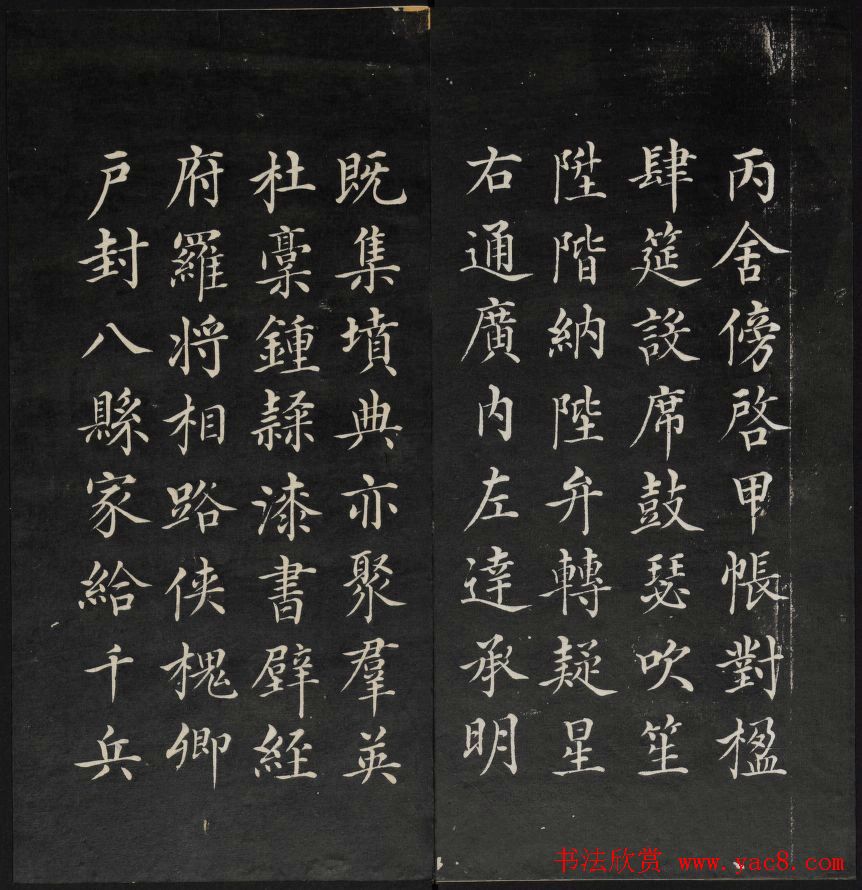 丙舍傍啓甲帳對楹
肆筵設席鼓瑟吹笙
陞階納陛弁轉疑星
右通廣内左達承明
既集墳典亦聚羣英
杜稾鍾隸漆書壁經
府羅将相路侠槐卿
戶封八縣家給千兵
书法欣赏 www.yac8.com